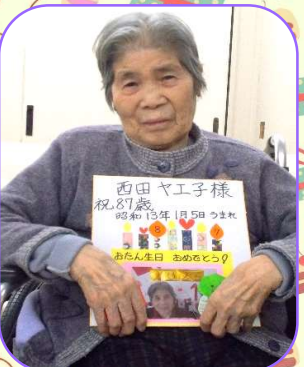 西田ヤエ子様
祝87歳
昭和13年1月5日うまれ
おたん生日 おめでとう!